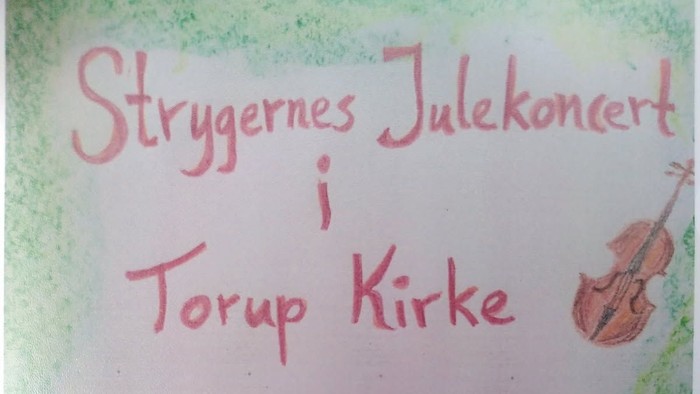 Strygernes Julekoncert
i
Torup Kirke